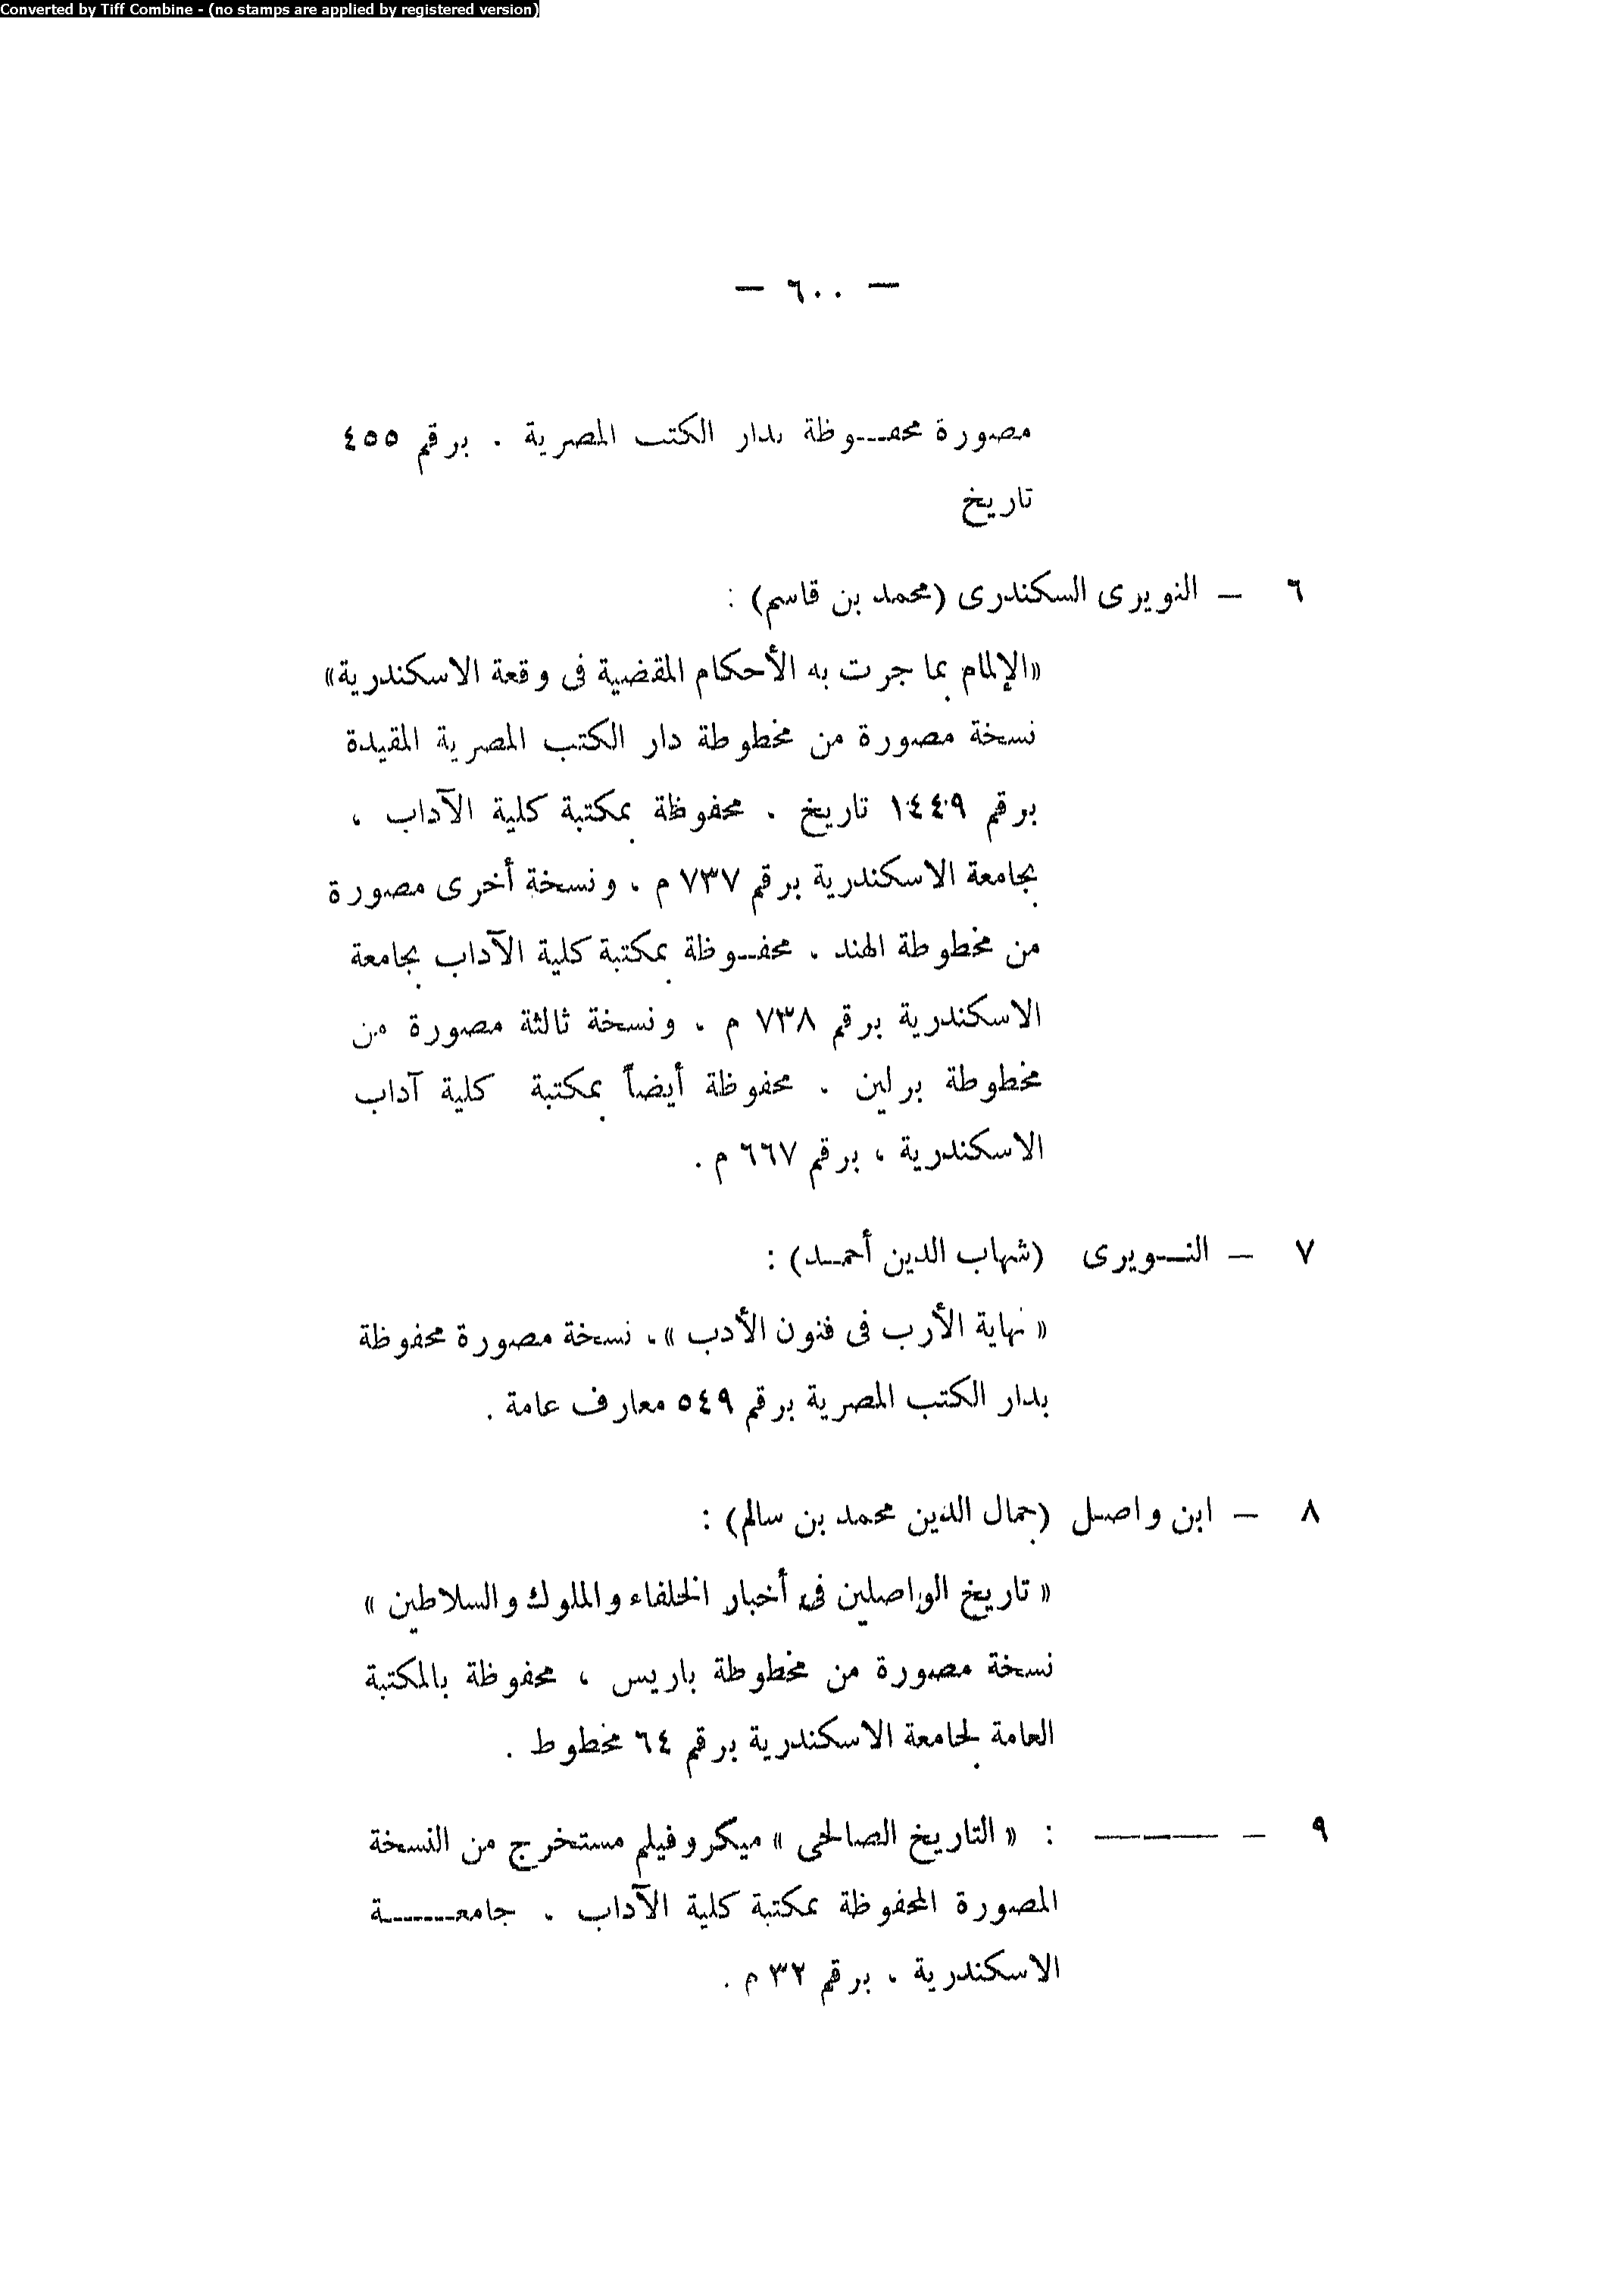 Converted by Tiff Combine - (no stamps are applied by registered version)
— ٦٠٠ —
مصورة محفوظة بدار الكتب المصرية . برقم ٤٥٥
تاريخ
٦ – النويرى السكندرى (محمد بن قاسم) :
«الإلمام بما جرت به الأحكام المقضية فى وقعة الاسكندرية»
نسخة مصورة من مخطوطة دار الكتب المصرية المقيدة
برقم ١٤٤٩ تاريخ . محفوظة بمكتبة كلية الآداب ،
بجامعة الاسكندرية برقم ٧٣٧ م ، ونسخة أخرى مصورة
من مخطوطة الهند ، محفوظة بمكتبة كلية الآداب بجامعة
الاسكندرية برقم ٧٣٨ م ، ونسخة ثالثة مصورة من
مخطوطة برلين . محفوظة أيضاً بمكتبة كلية آداب
الاسكندرية ، برقم ٦٦٧ م .
٧ – النويرى (شهاب الدين أحمد) :
« نهاية الأرب فى فنون الأدب » ، نسخة مصورة محفوظة
بدار الكتب المصرية برقم ٥٤٩ معارف عامة .
٨ – ابن واصل (جمال الدين محمد بن سالم) :
« تاريخ الواصلين فى أخبار الخلفاء والملوك والسلاطين »
نسخة مصورة من مخطوطة باريس ، محفوظة بالمكتبة
العامة لجامعة الاسكندرية برقم ٦٤ مخطوط .
٩ – ———— : « التاريخ الصالحى » ميكروفيلم مستخرج من النسخة
المصورة المحفوظة بمكتبة كلية الآداب . جامعة
الاسكندرية ، برقم ٣٢ م .